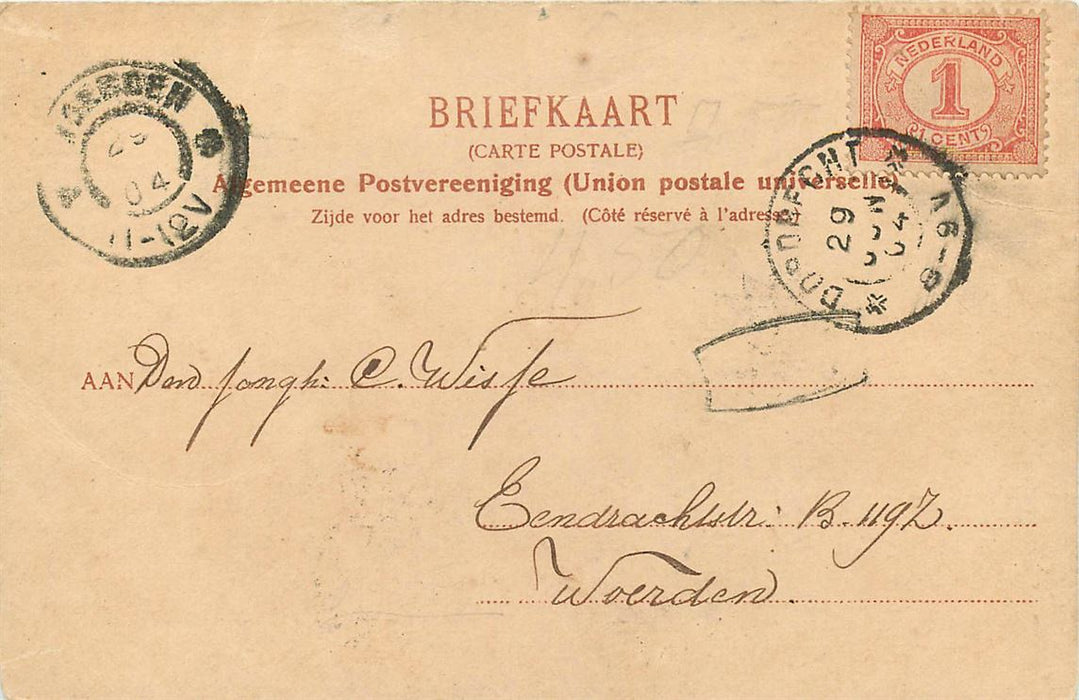 NEDERLAND
1
1 CENT
WOERDEN
29
04
11-12V
BRIEFKAART
(CARTE POSTALE)
Algemeene Postvereeniging (Union postale universelle)
Zijde voor het adres bestemd. (Côté réservé à l'adresse)
DORDRECHT
29 JUN 04
6-8
AAN Den Jongh: C. Wisse
Eendrachtstr: B.119Z.
Woerden.